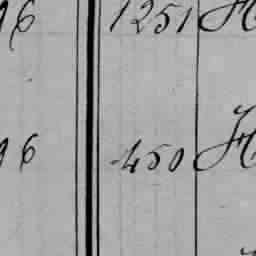 96 1251 H
96 450 H